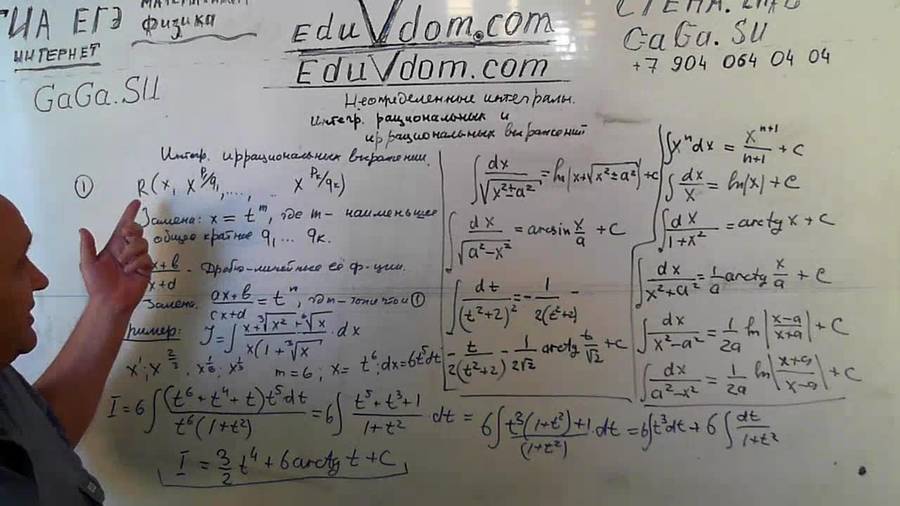 ГИА ЕГЭ
ИНТЕРНЕТ
Физика
EduVdom.com
EduVdom.com
GaGa.SU
+7 904 064 04 04
GaGa.SU
Неопределенные интегралы.
Интегр. рациональных и
иррациональных выражений
Интегр. иррациональных выражений.
① R(x, x^{p/q_1}, ..., x^{p_k/q_k})
Замена: x = t^m, где m - наименьшее
общее кратное q_1 ... q_k.
x+b/x+d - Дробно-линейные её ф-ции.
Замена. ax+b/cx+d = t^m, где m - то же что и ①
ример: J = ∫ (x+∛x²+⁶√x)/(x(1+∛x)) dx
x^1; x^{2/3}; x^{1/6}; x^{1/3} m=6; x = t^6; dx = 6t^5dt
I = 6∫ (t^6+t^4+t)t^5dt/(t^6(1+t²)) = 6∫ (t^5+t^3+1)/(1+t²) dt = 6∫ (t^3(1+t²)+1)/(1+t²) dt = 6∫t³dt + 6∫ dt/(1+t²)
I = 3/2 t^4 + 6 arctg t + C
∫ dx/√(x²±a²) = ln|x+√(x²±a²)| + C
∫ dx/√(a²-x²) = arcsin x/a + C
∫ dt/(t²+2)² = - 1/2(t²+2) -
- t/2(t²+2) - 1/2√2 arctg t/√2 + C
∫x^n dx = x^{n+1}/n+1 + C
∫ dx/x = ln|x| + C
∫ dx/(1+x²) = arctg x + C
∫ dx/(x²+a²) = 1/a arctg x/a + C
∫ dx/(x²-a²) = 1/2a ln|(x-a)/(x+a)| + C
∫ dx/(a²-x²) = 1/2a ln|(x+a)/(x-a)| + C